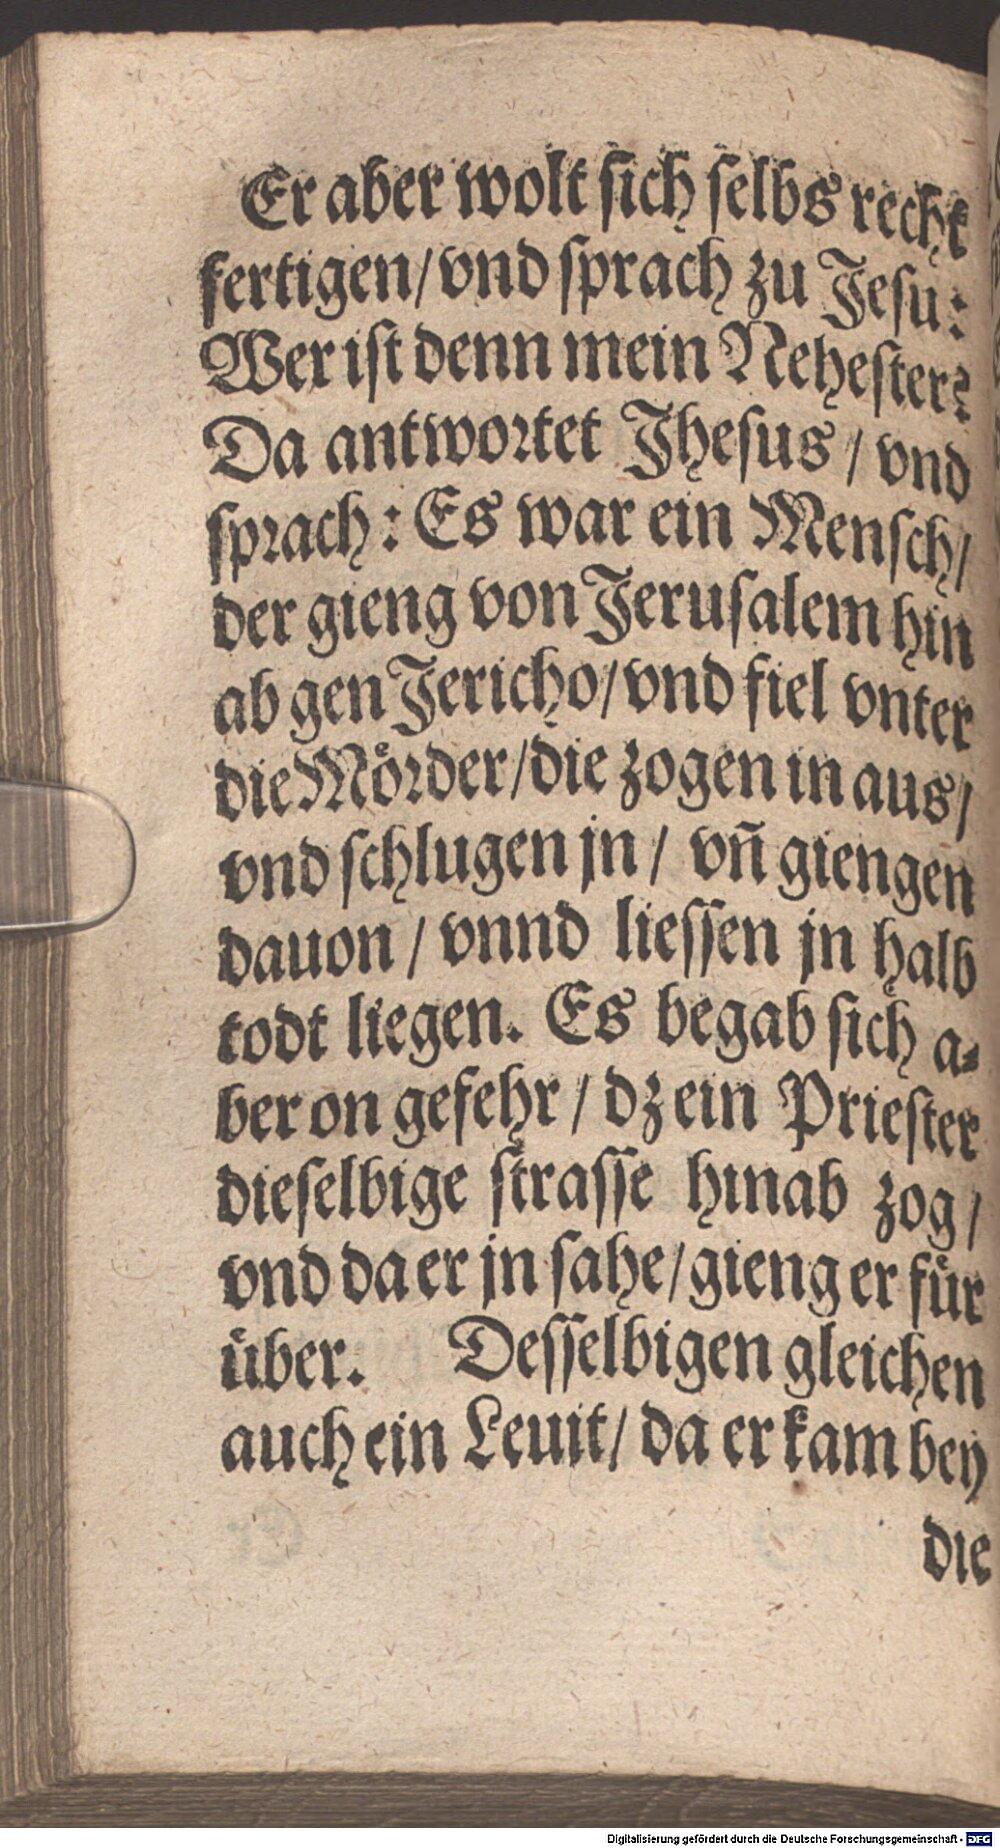 Er aber wolt sich selbs recht
fertigen/ vnd sprach zu Jesu:
Wer ist denn mein Nehester?
Da antwortet Jhesus / vnd
sprach: Es war ein Mensch/
der gieng von Jerusalem hin
ab gen Jericho/ vnd fiel vnter
die Moͤrder/ die zogen in aus/
vnd schlugen jn / vn̄ giengen
dauon / vnnd liessen jn halb
todt liegen. Es begab sich a-
ber on gefehr / dz ein Priester
dieselbige strasse hinab zog /
vnd da er jn sahe/ gieng er fuͤr
uͤber. Desselbigen gleichen
auch ein Leuit/ da er kam bey
die
Digitalisierung gefördert durch die Deutsche Forschungsgemeinschaft - DFG